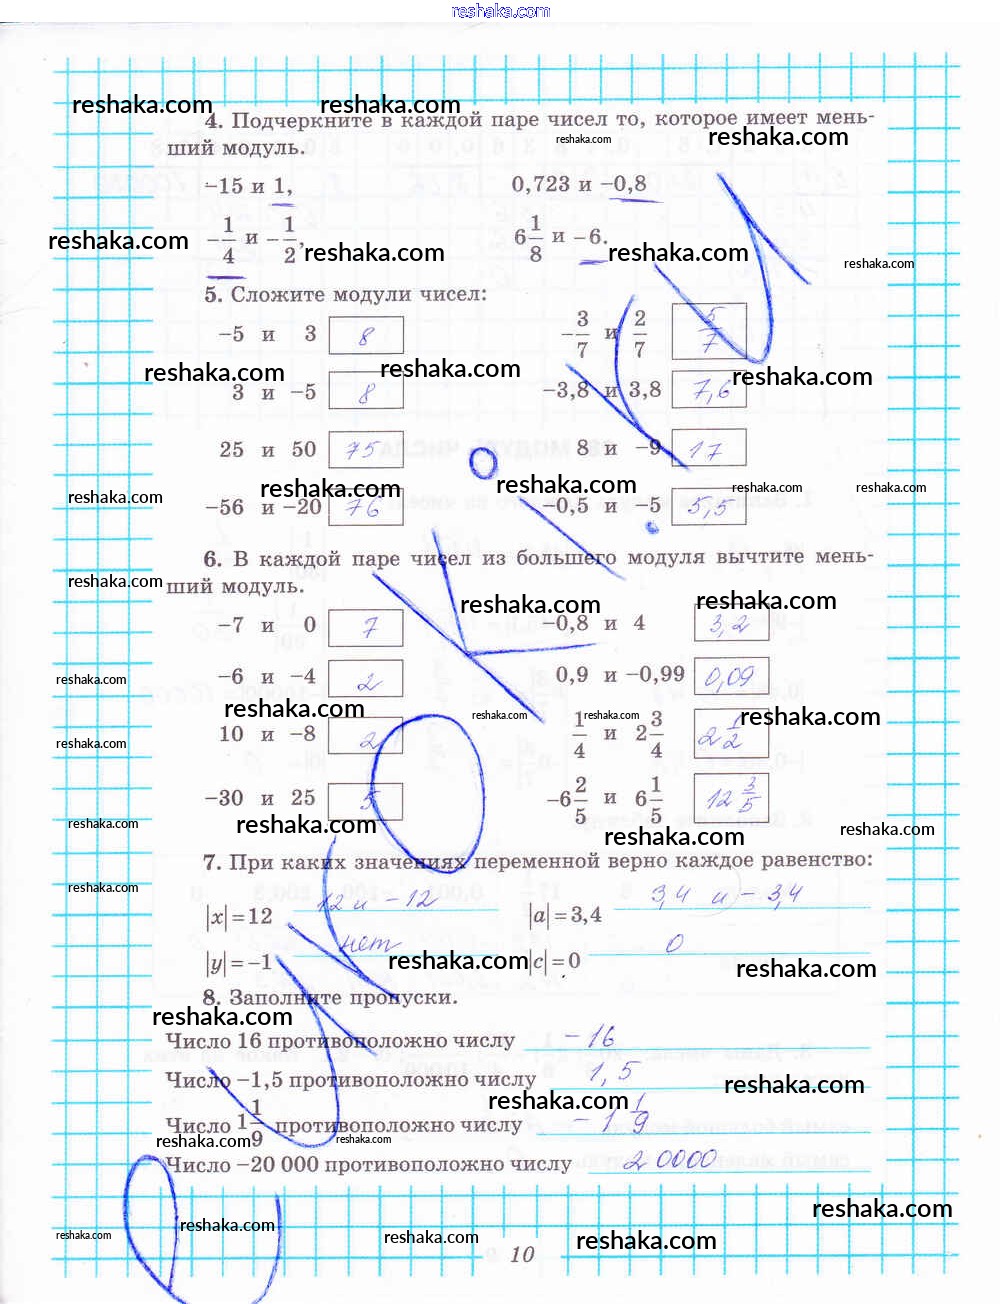 reshaka.com
reshaka.com reshaka.com
4. Подчеркните в каждой паре чисел то, которое имеет мень-
reshaka.com reshaka.com
ший модуль.
-15 и 1,
0,723 и -0,8
-1/4 и -1/2,
6 1/8 и -6.
reshaka.com reshaka.com reshaka.com reshaka.com
5. Сложите модули чисел:
-5 и 3 8
-3/7 и 2/7 5/7
reshaka.com reshaka.com reshaka.com
3 и -5 8
-3,8 и 3,8 7,6
25 и 50 75
8 и -9 17
reshaka.com reshaka.com reshaka.com reshaka.com reshaka.com
-56 и -20 76
-0,5 и -5 5,5
6. В каждой паре чисел из большего модуля вычтите мень-
reshaka.com
ший модуль.
reshaka.com reshaka.com
-7 и 0 7
-0,8 и 4 3,2
-6 и -4 2
0,9 и -0,99 0,09
reshaka.com
reshaka.com reshaka.com reshaka.com reshaka.com
10 и -8 2
1/4 и 2 3/4 2 1/2
reshaka.com
-30 и 25 5
-6 2/5 и 6 1/5 12 3/5
reshaka.com reshaka.com reshaka.com reshaka.com
7. При каких значениях переменной верно каждое равенство:
reshaka.com
|x|=12 12 и -12
|a|=3,4 3,4 и -3,4
|y|=-1 нет
|c|=0 0
reshaka.com reshaka.com
8. Заполните пропуски.
reshaka.com
Число 16 противоположно числу -16
Число -1,5 противоположно числу 1,5
reshaka.com reshaka.com
Число 1 1/9 противоположно числу -1 1/9
reshaka.com reshaka.com
Число -20 000 противоположно числу 20000
reshaka.com
reshaka.com reshaka.com reshaka.com reshaka.com
10